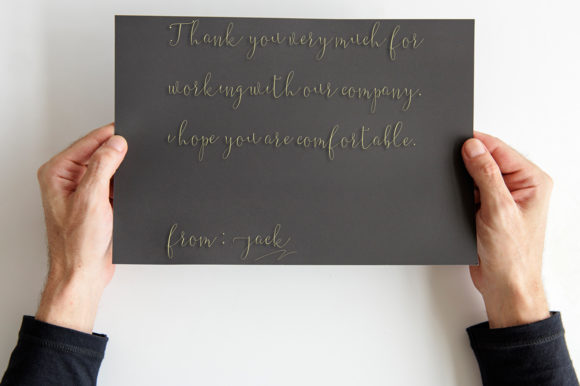 Thank you very much for
working with our company.
i hope you are comfortable.
from : jack